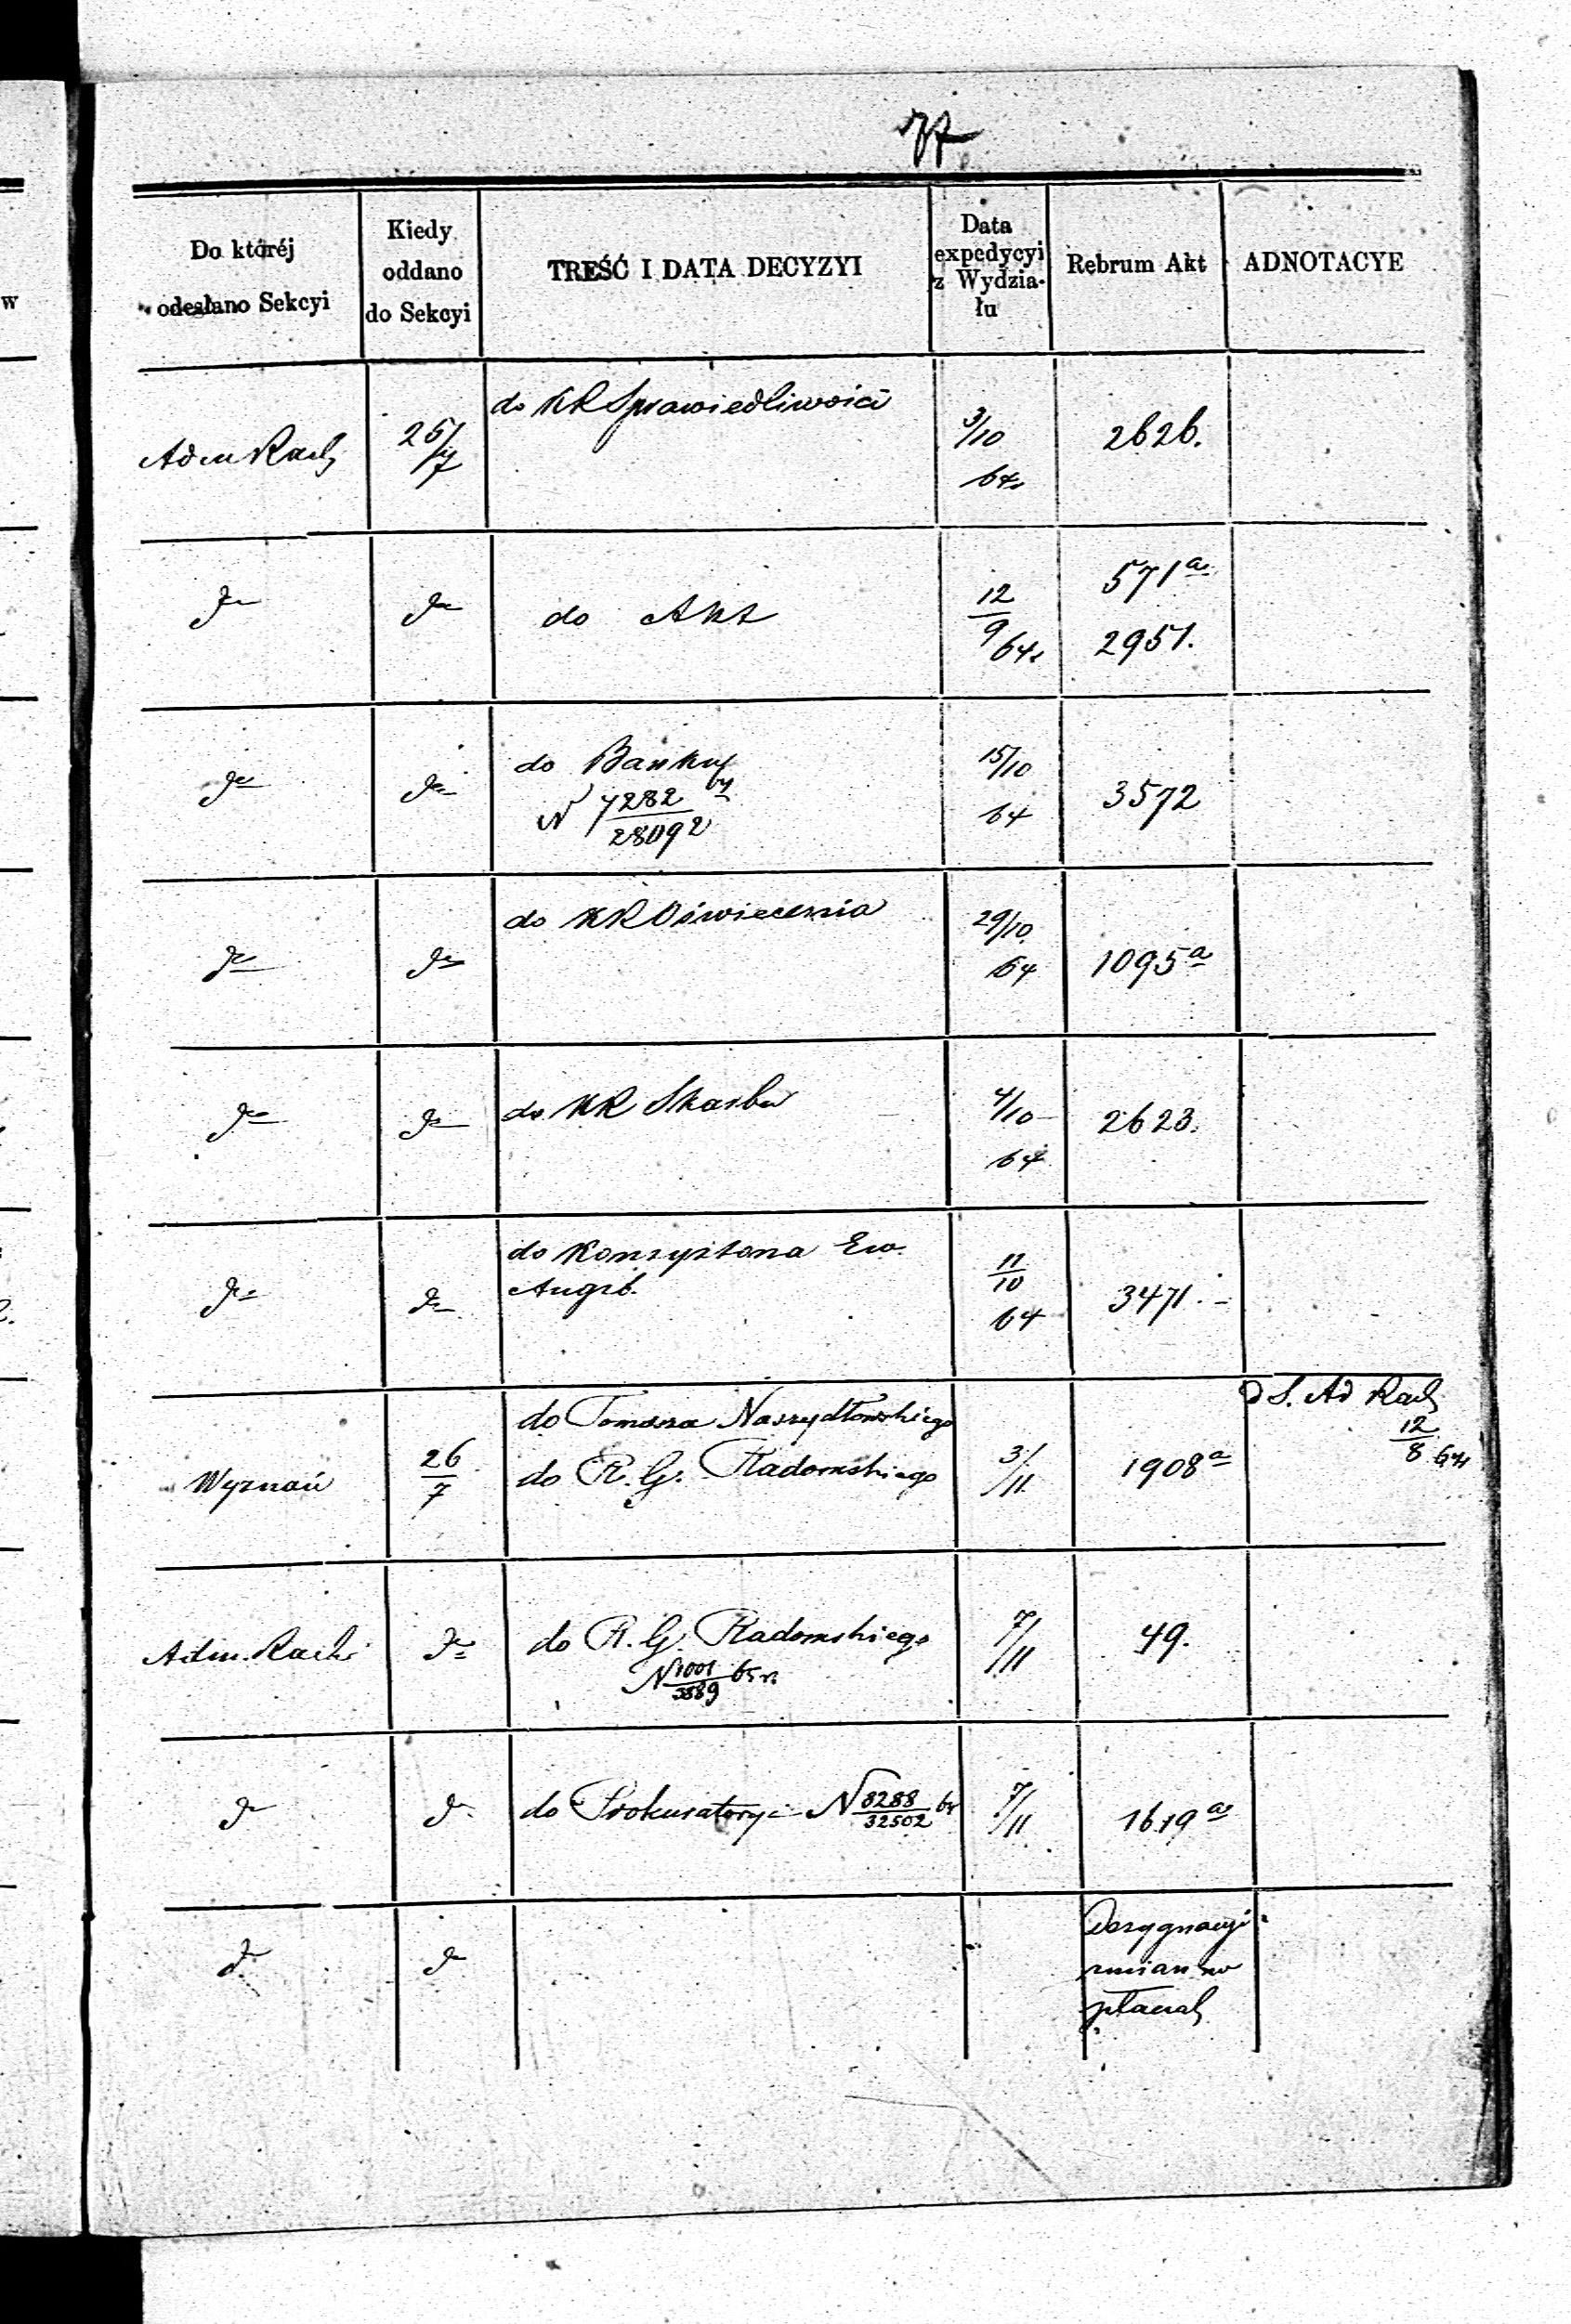 77
Do któréj
odesłano Sekcyi
Kiedy
oddano
do Sekcyi
TREŚĆ I DATA DECYZYI
Data
expedycyi
z Wydzia-
łu
Rebrum Akt
ADNOTACYE
Adm Rach
25/7
do KR Sprawiedliwości
3/10
64
2626.
do
do
do Akt
12/9 64
571 a
2951.
do
do
do Banku
N 7282/28092
15/10
64
3572
do
do
do KR Oświecenia
29/10
64
1095 a
do
do
do KR Skarbu
4/10
64
2623.
do
do
do Konsystorza Ew.
Augsb.
11/10
64
3471.
Wyznań
26/7
do Tomasza Naszydłowskiego
do R. G. Radomskiego
3/11
1908 a
d S. Ad Rach
12/8 64
Adm. Rach
do
do R. G. Radomskiego
N 1001/3889 65 r.
7/11
49.
do
do
do Prokuratoryi N 8288/32502
7/11
1619 a
do
do
zmian w
płacach